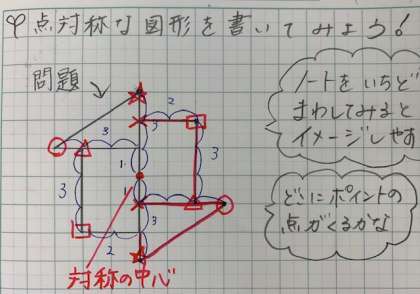 点対称な図形を書いてみよう!
問題
ノートをいちど
まわしてみると
イメージしやす
どこにポイントの
点がくるかな
2
3
3
3
1
3
1
3
2
対称の中心